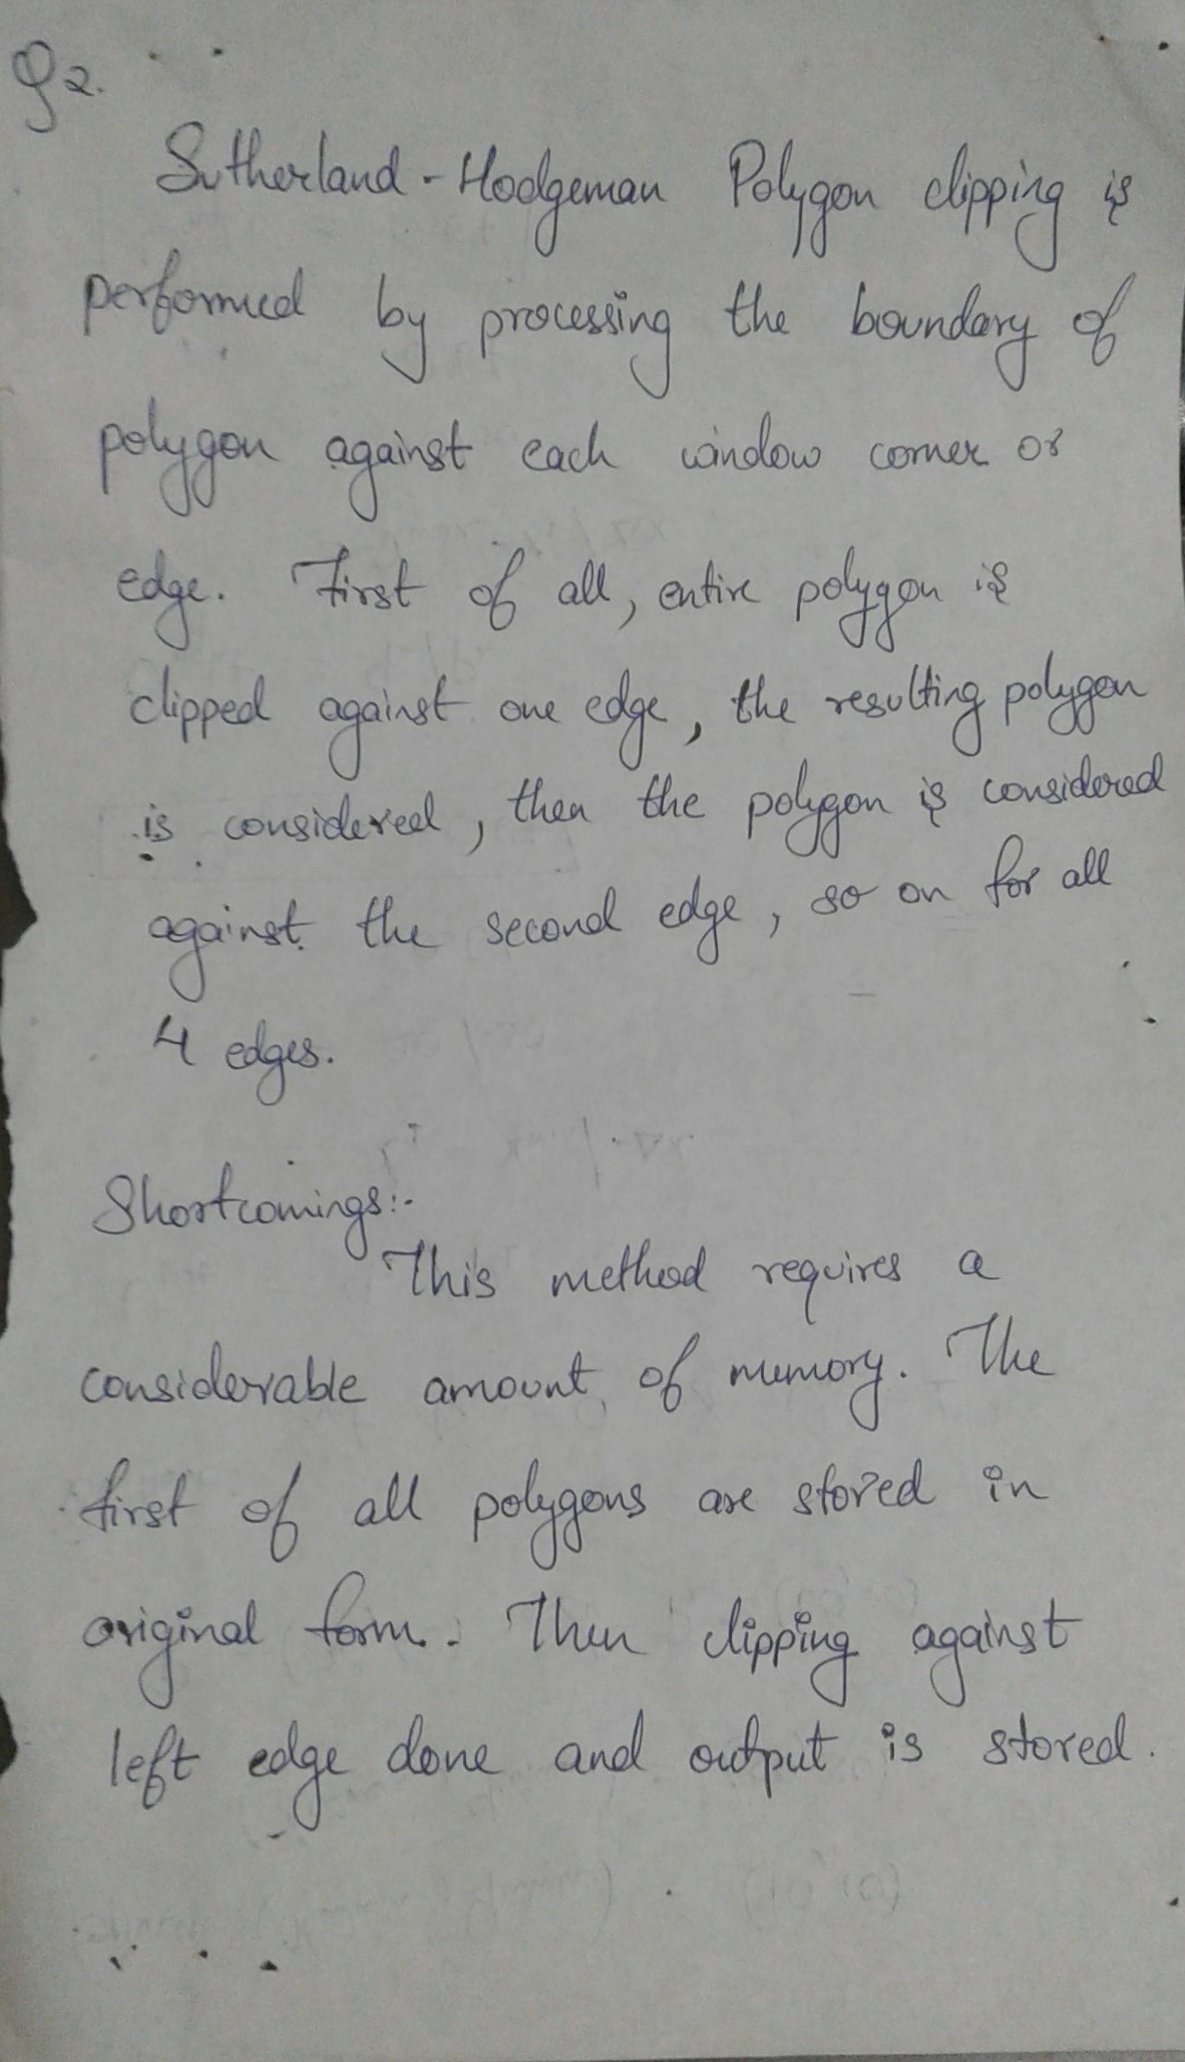 Q2.
Sutherland - Hodgeman Polygon clipping is
performed by processing the boundary of
polygon against each window corner or
edge. First of all, entire polygon is
clipped against one edge, the resulting polygon
is considered, then the polygon is considered
against the second edge, so on for all
4 edges.
Shortcomings:-
This method requires a
considerable amount of memory. The
first of all polygons are stored in
original form. Then clipping against
left edge done and output is stored.